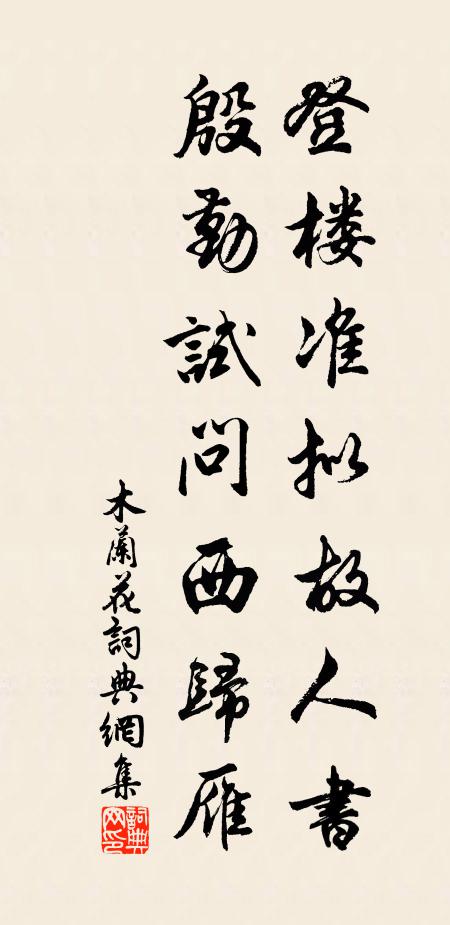 登楼准拟故人書
殷勤試問西歸雁
木蘭花詞典網集
詞典网印